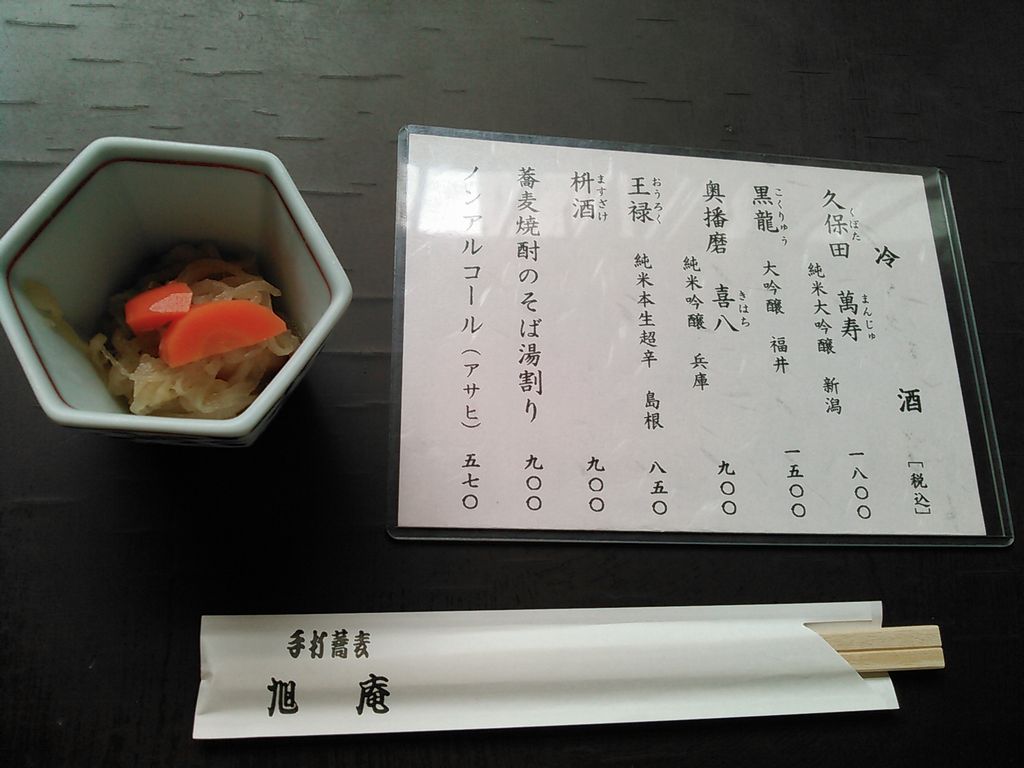 冷酒 [税込]
久保田 くぼた 萬寿 まんじゅ
純米大吟醸 新潟 一八〇〇
黒龍 こくりゅう 大吟醸 福井 一五〇〇
奥播磨 喜八 きはち
純米吟醸 兵庫 九〇〇
王禄 おうろく 純米本生超辛 島根 八五〇
枡酒 ますざけ 九〇〇
蕎麦焼酎のそば湯割り 九〇〇
ノンアルコール(アサヒ) 五七〇
手打蕎麦
旭庵